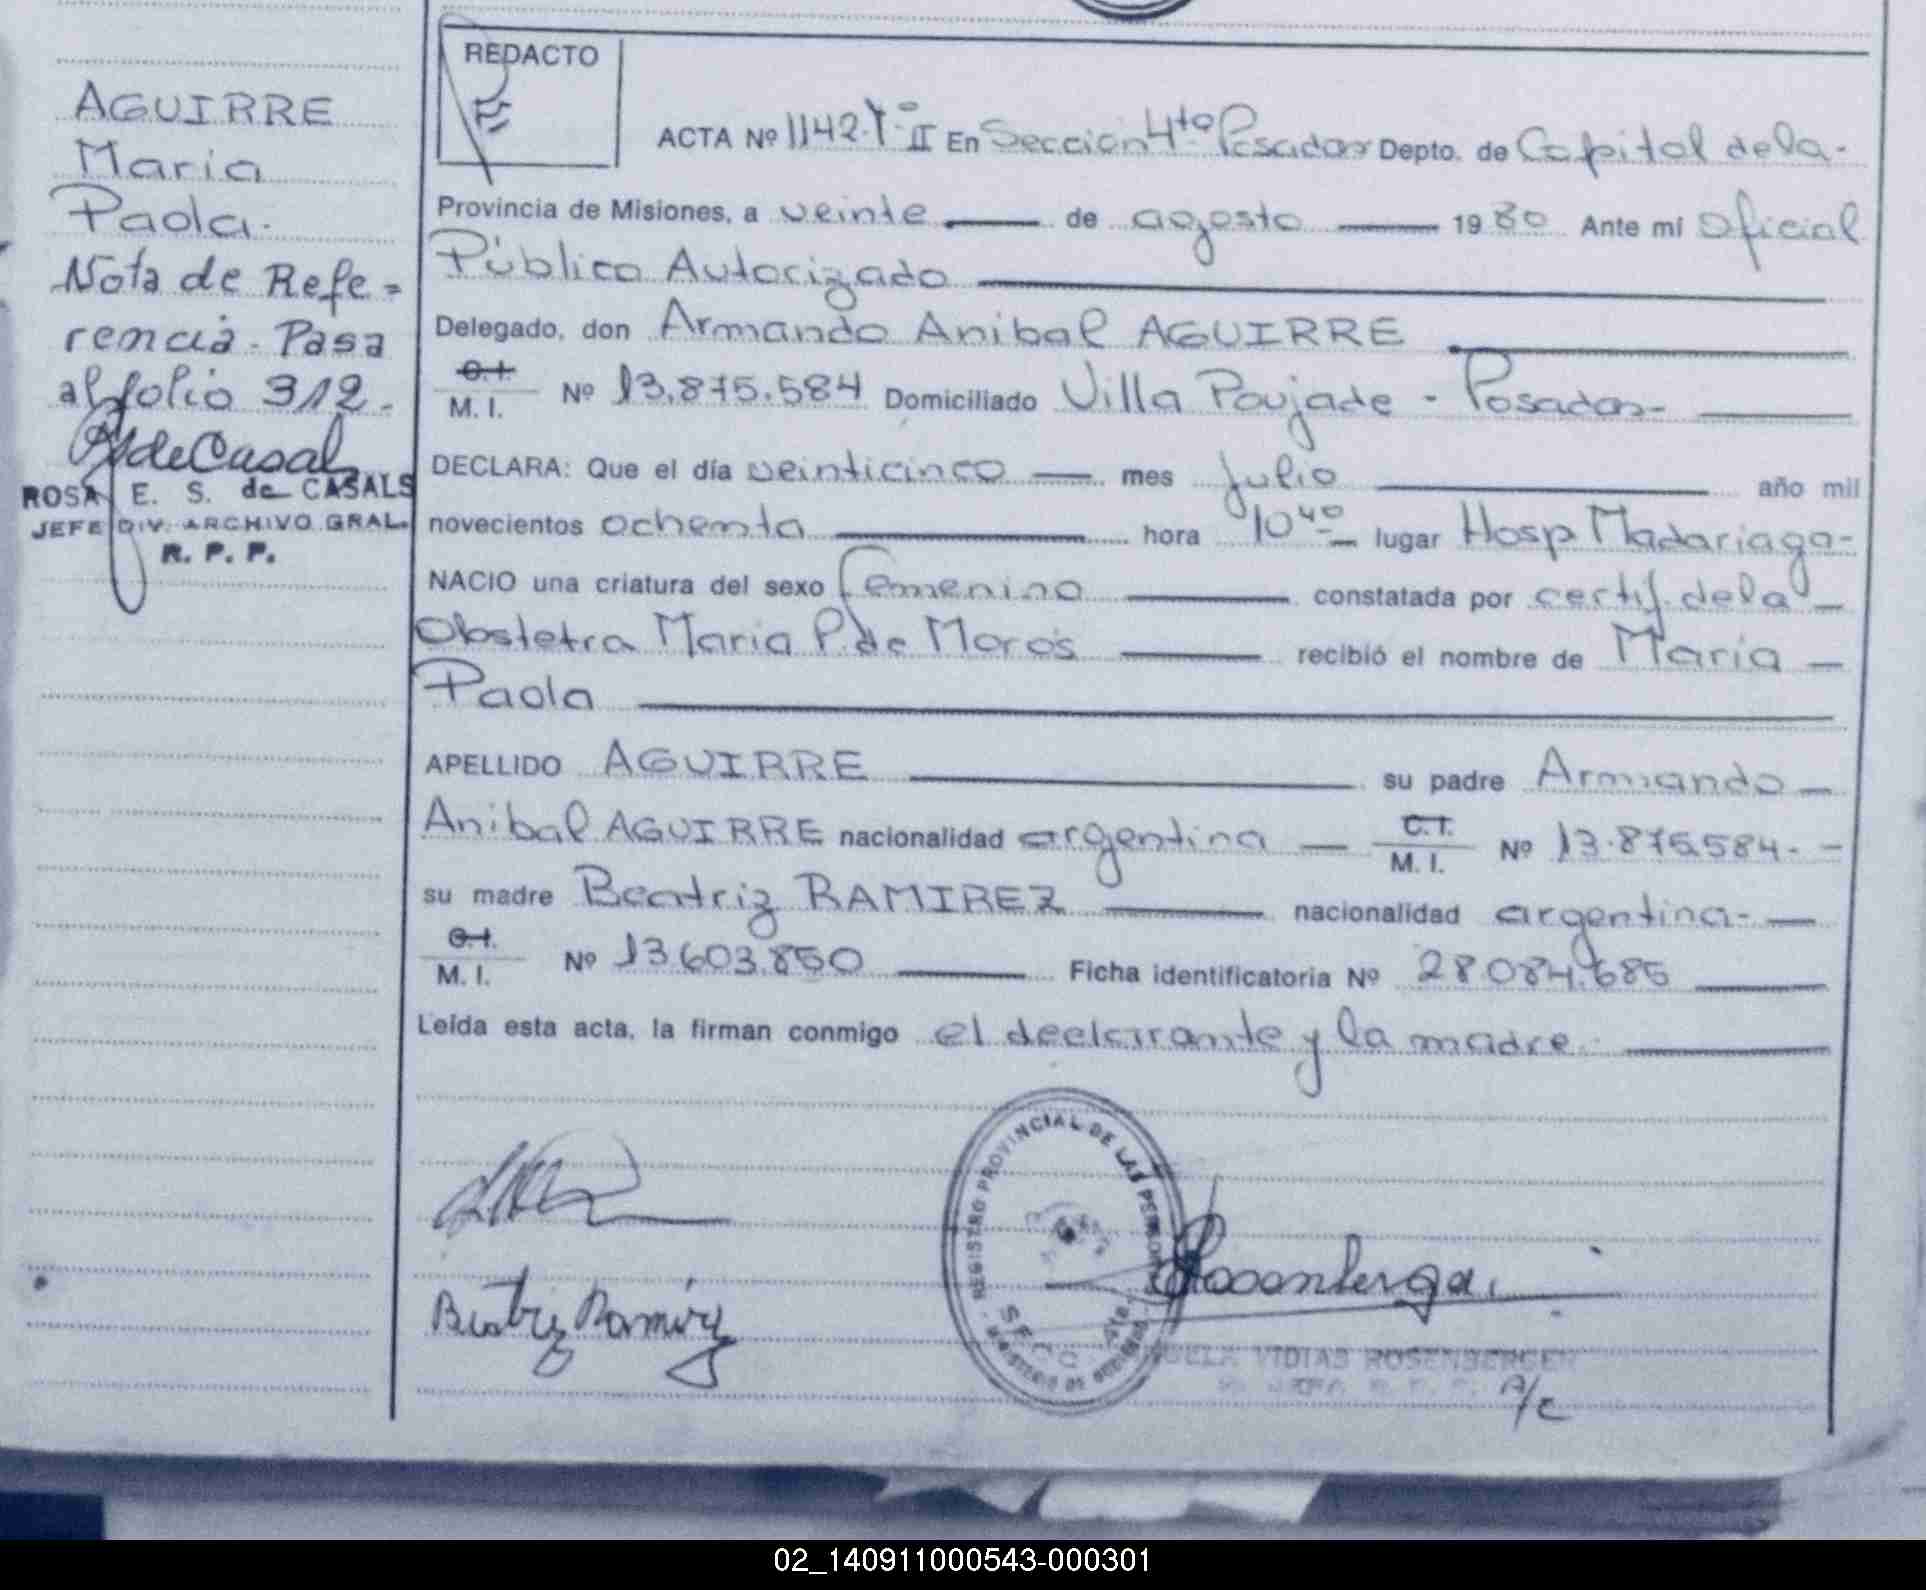 AGUIRRE
Maria
Paola.
Nota de Refe=
rencia. Pasa
al folio 312.
deCasal
ROSA E. S. de CASALS
JEFE DIV. ARCHIVO GRAL.
R. P. P.
REDACTO
ACTA Nº 1142-Tº II En Sección 4ta Posadas Depto. de Capital de la-
Provincia de Misiones, a veinte de agosto 1980 Ante mí Oficial
Público Autorizado
Delegado, don Armando Anibal AGUIRRE
C.I.
M. I. Nº 13.875.584 Domiciliado Villa Poujade - Posadas-
DECLARA: Que el día veinticinco mes Julio año mil
novecientos ochenta hora 10 40 lugar Hosp Madariaga-
NACIO una criatura del sexo femenino constatada por certif. de la
Obstetra Maria P. de Moros recibió el nombre de Maria
Paola
APELLIDO AGUIRRE su padre Armando
Anibal AGUIRRE nacionalidad argentina C.I. M. I. Nº 13.875.584.-
su madre Beatriz RAMIREZ nacionalidad argentina-
C.I.
M. I. Nº 13.603.850 Ficha identificatoria Nº 28.084.685
Leída esta acta, la firman conmigo el declarante y la madre.
REGISTRO PROVINCIAL DE LAS PERSONAS
SECC. 4ta.
Beatriz Ramirez
VIDIAS ROSENBERGER
A/C
02_140911000543-000301